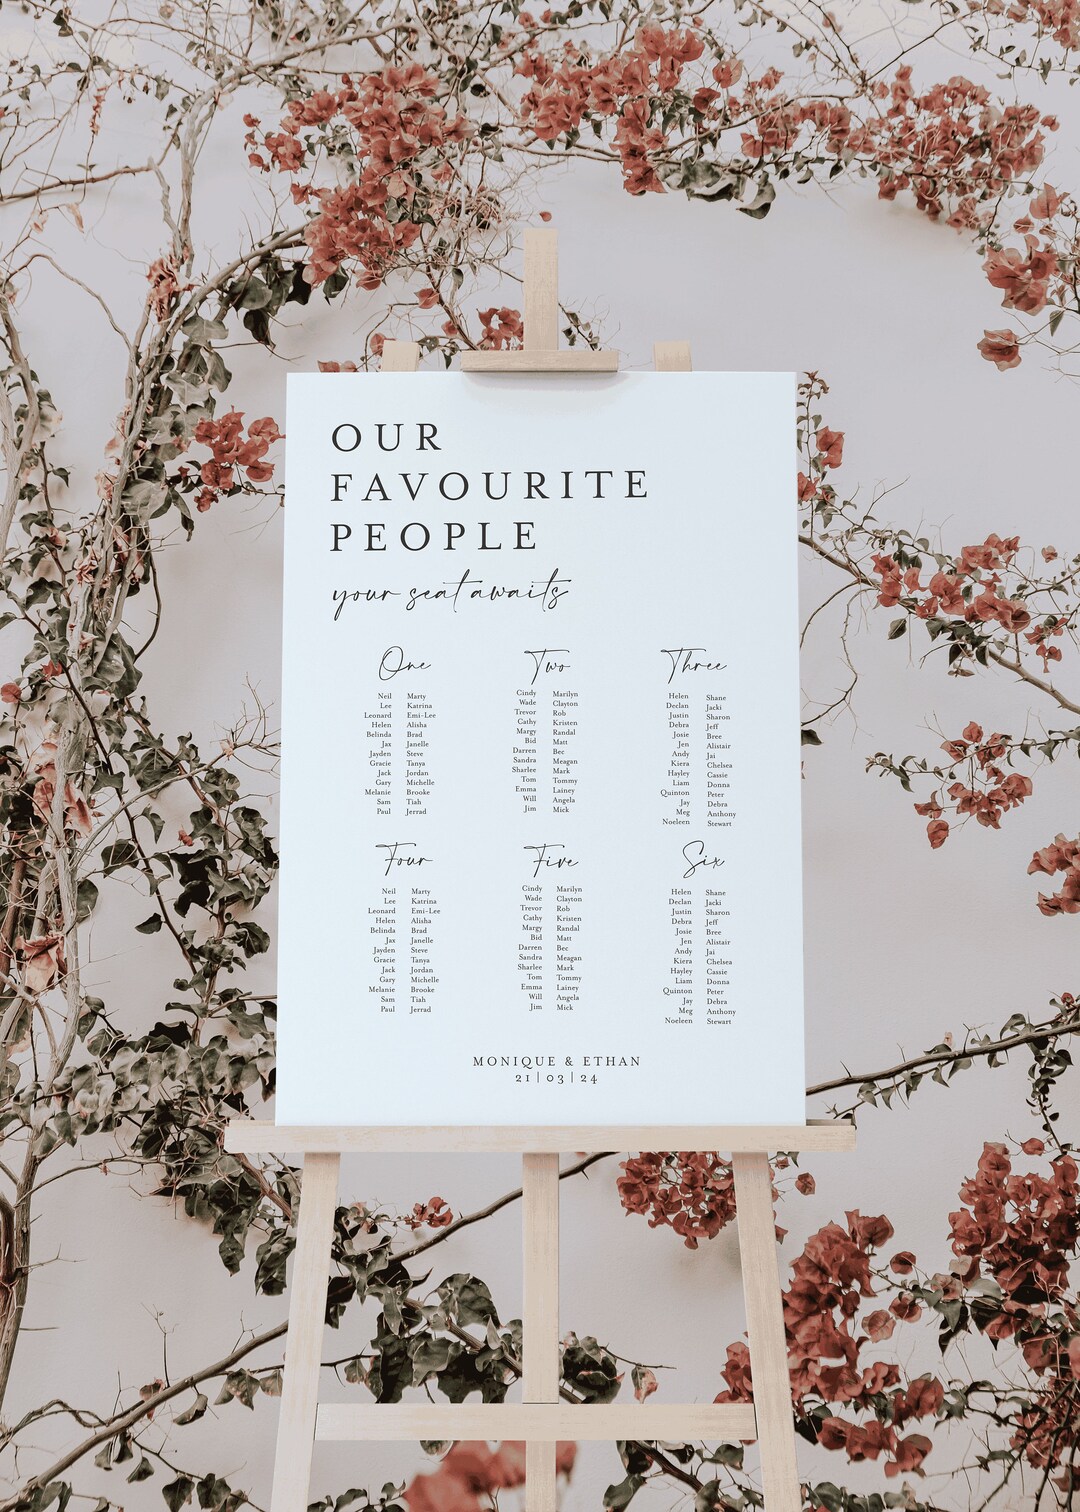 OUR
FAVOURITE
PEOPLE
your seat awaits
One
Neil Marty
Lee Katrina
Leonard Emi-Lee
Helen Alisha
Belinda Brad
Jax Janelle
Jayden Steve
Gracie Tanya
Jack Jordan
Gary Michelle
Melanie Brooke
Sam Tiah
Paul Jerrad
Two
Cindy Marilyn
Wade Clayton
Trevor Rob
Cathy Kristen
Margy Randal
Bid Matt
Darren Bec
Sandra Meagan
Sharlee Mark
Tom Tommy
Emma Lainey
Will Angela
Jim Mick
Three
Helen Shane
Declan Jacki
Justin Sharon
Debra Jeff
Josie Bree
Jen Alistair
Andy Jai
Kiera Chelsea
Hayley Cassie
Liam Donna
Quinton Peter
Jay Debra
Meg Anthony
Noeleen Stewart
Four
Neil Marty
Lee Katrina
Leonard Emi-Lee
Helen Alisha
Belinda Brad
Jax Janelle
Jayden Steve
Gracie Tanya
Jack Jordan
Gary Michelle
Melanie Brooke
Sam Tiah
Paul Jerrad
Five
Cindy Marilyn
Wade Clayton
Trevor Rob
Cathy Kristen
Margy Randal
Bid Matt
Darren Bec
Sandra Meagan
Sharlee Mark
Tom Tommy
Emma Lainey
Will Angela
Jim Mick
Six
Helen Shane
Declan Jacki
Justin Sharon
Debra Jeff
Josie Bree
Jen Alistair
Andy Jai
Kiera Chelsea
Hayley Cassie
Liam Donna
Quinton Peter
Jay Debra
Meg Anthony
Noeleen Stewart
MONIQUE & ETHAN
21 | 03 | 24